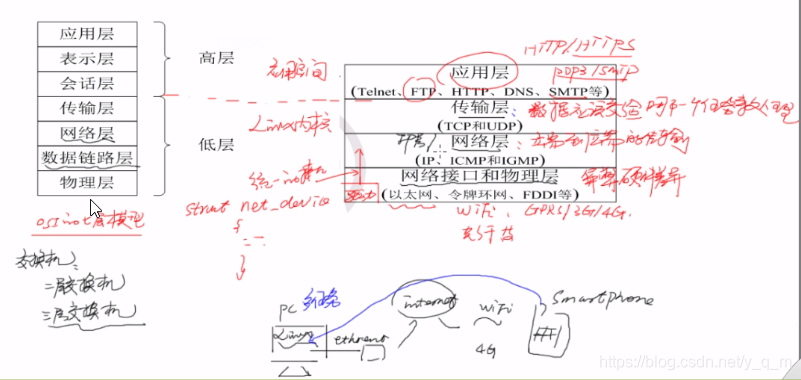 应用层
表示层
会话层
传输层
网络层
数据链路层
物理层
高层
低层
OSI的七层模型
交换机:
二层交换机
三层交换机
应用空间
Linux内核
统一的接口
struct net_device
{
}
驱动
HTTP/HTTPS
POP3/SMTP
应用层
(Telnet、FTP、HTTP、DNS、SMTP等)
传输层
(TCP和UDP)
网络层
(IP、ICMP和IGMP)
网络接口和物理层
(以太网、令牌环网、FDDI等)
屏蔽硬件差异
WiFi、GPRS/3G/4G.
PC
Linux
ethernet
internet
WiFi
4G
Smartphone
https://blog.csdn.net/y_q_m